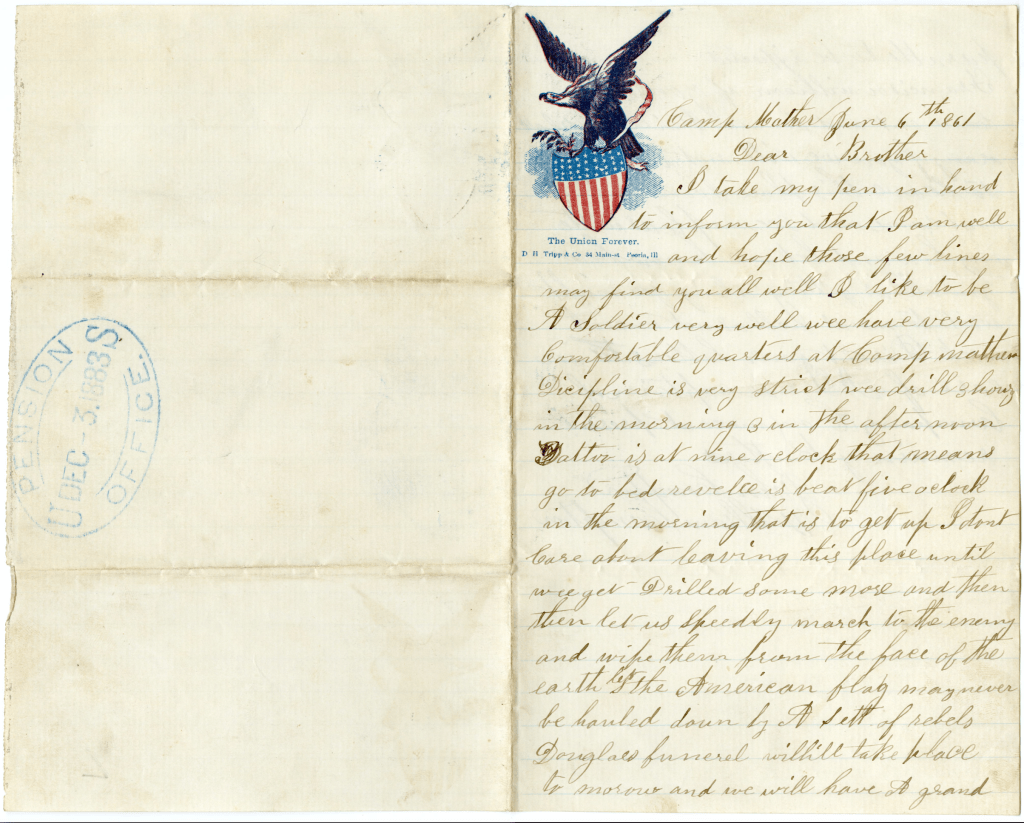 U.S
PENSION
DEC - 3. 1883
OFFICE.
The Union Forever.
D. H. Tripp & Co 54 Main-st Peoria, Ill
Camp Mather June 6th 1861
Dear Brother
I take my pen in hand
to inform you that I am well
and hope those few lines
may find you all well I like to be
A Soldier very well wee have very
Comfortable quarters at Camp mather
Dicipline is very strict wee drill 3 hours
in the morning 3 in the after noon
Tattoo is at nine o clock that means
go to bed revelee is beat five oclock
in the morning that is to get up I dont
Care about leaving this place until
wee get Drilled some more and then
then let us speedly march to the enemy
and wipe them from the face of the
earth let the American flag may never
be hauled down by A sett of rebels
Douglass funerel willill take place
to morow and we will have A grand